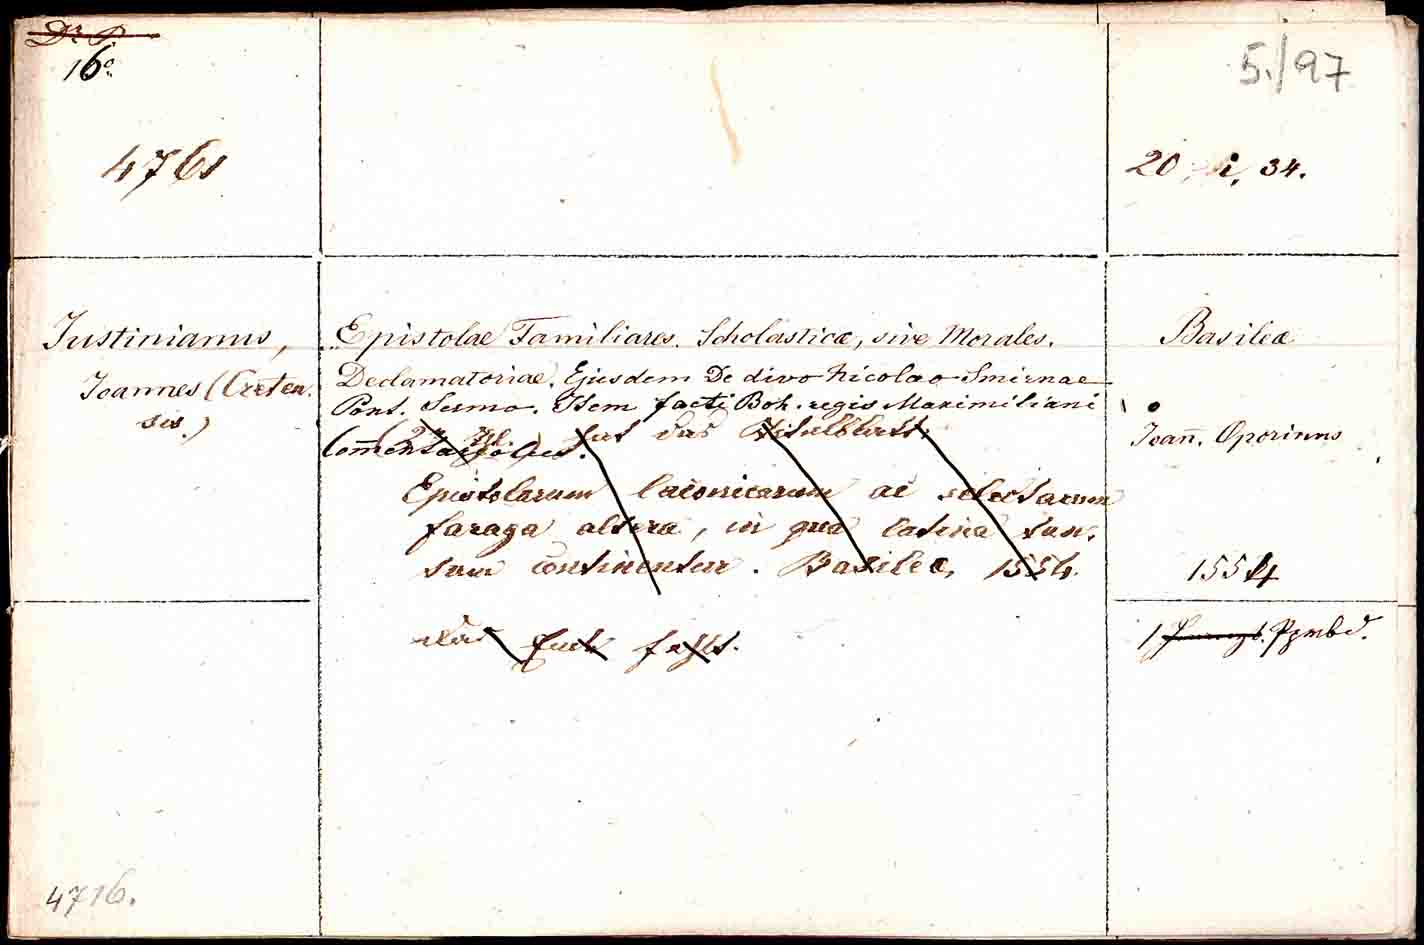 16º
5./97
4761
20. i. 34.
Iustinianus,
Ioannes (Creten-
sis.)
Epistolae Familiares. Scholasticæ, sive Morales.
Declamatoriae. Ejusdem De divo Nicolao Smirnae
Pont. Sermo. Item facti Boh. regis Maximiliani
Comentariolus.
hat das Titelblatt,
Epistolarum laconicarum ac selectarum
farago altera, in qua latina tan-
tum continentur. Basileæ, 1554.
das Ende fehlt.
Basileæ
Ioañ. Oporinus
1554
1 Ppmbd.
4716.